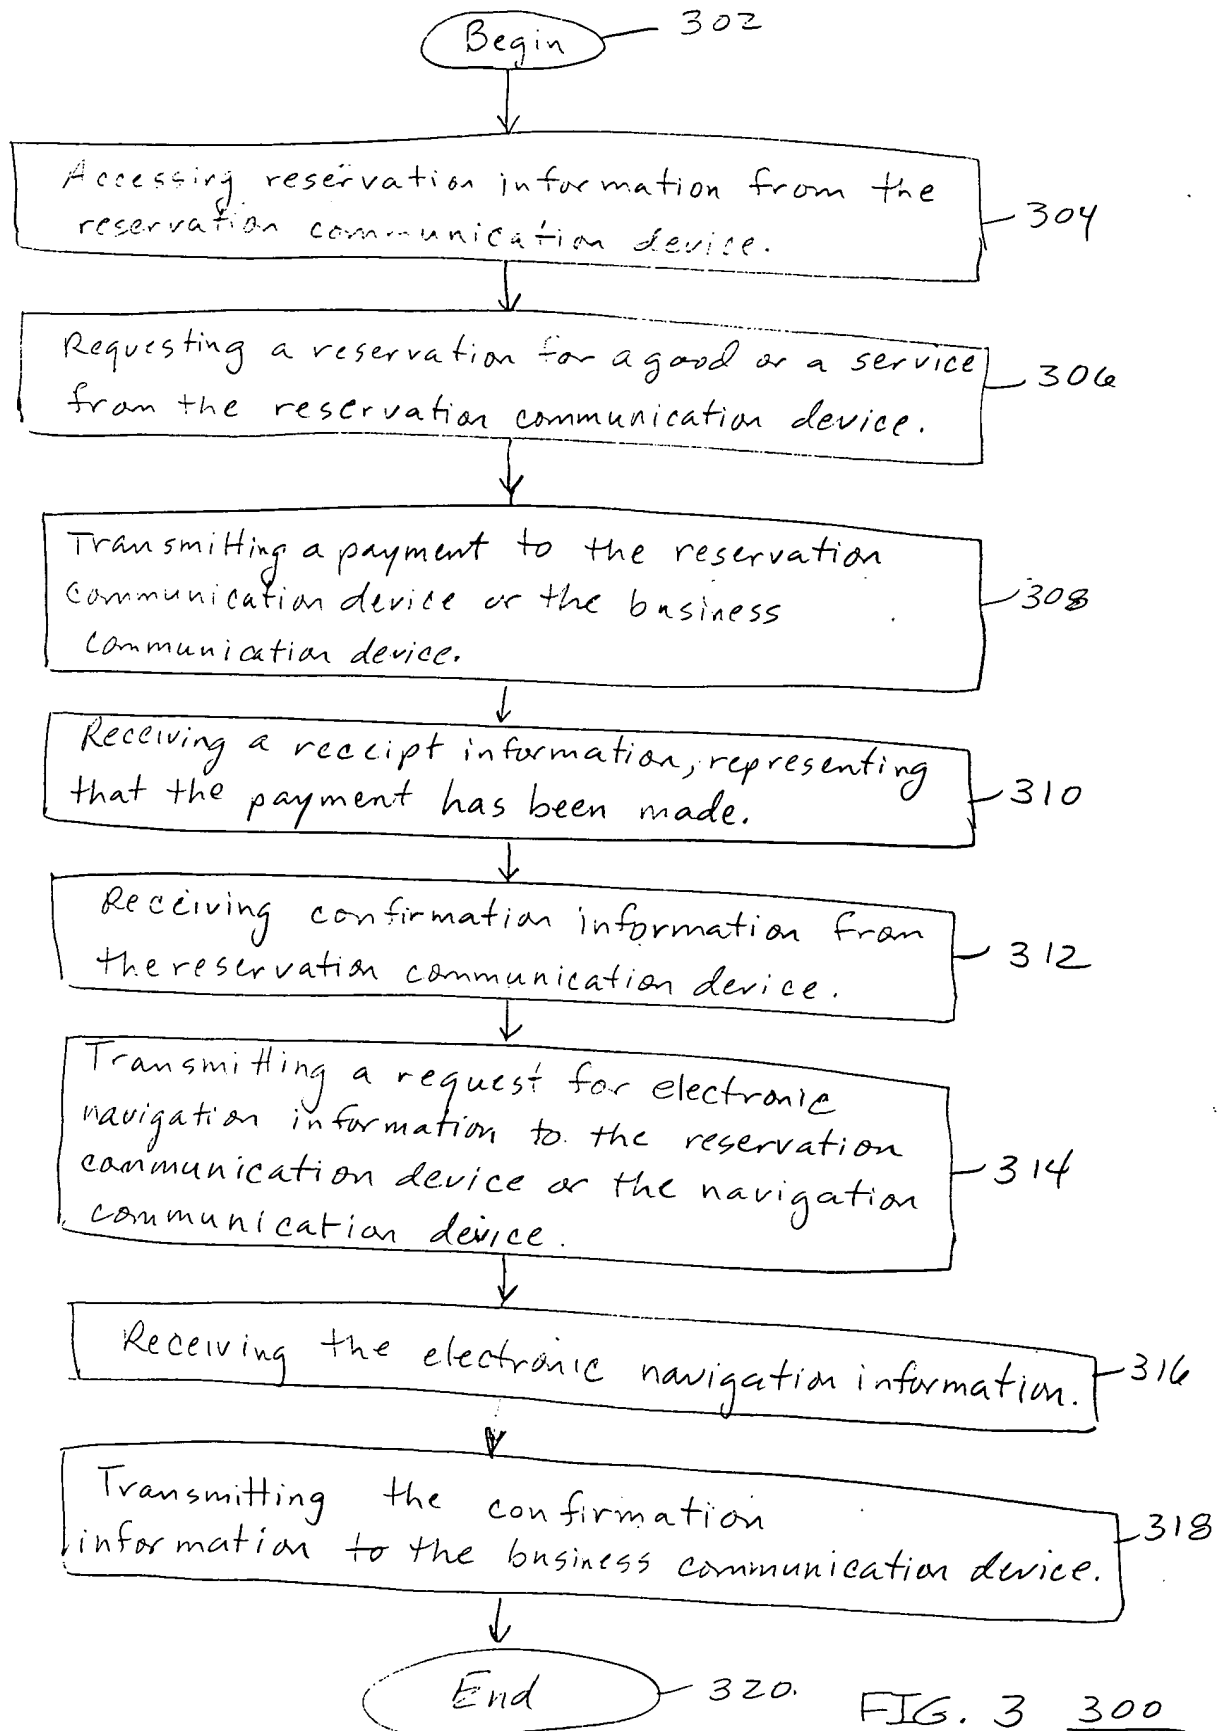 Begin 302
Accessing reservation information from the
reservation communication device. 304
Requesting a reservation for a good or a service
from the reservation communication device. 306
Transmitting a payment to the reservation
communication device or the business
communication device. 308
Receiving a receipt information, representing
that the payment has been made. 310
Receiving confirmation information from
the reservation communication device. 312
Transmitting a request for electronic
navigation information to the reservation
communication device or the navigation
communication device. 314
Receiving the electronic navigation information. 316
Transmitting the confirmation
information to the business communication device. 318
End 320.
FIG. 3 300